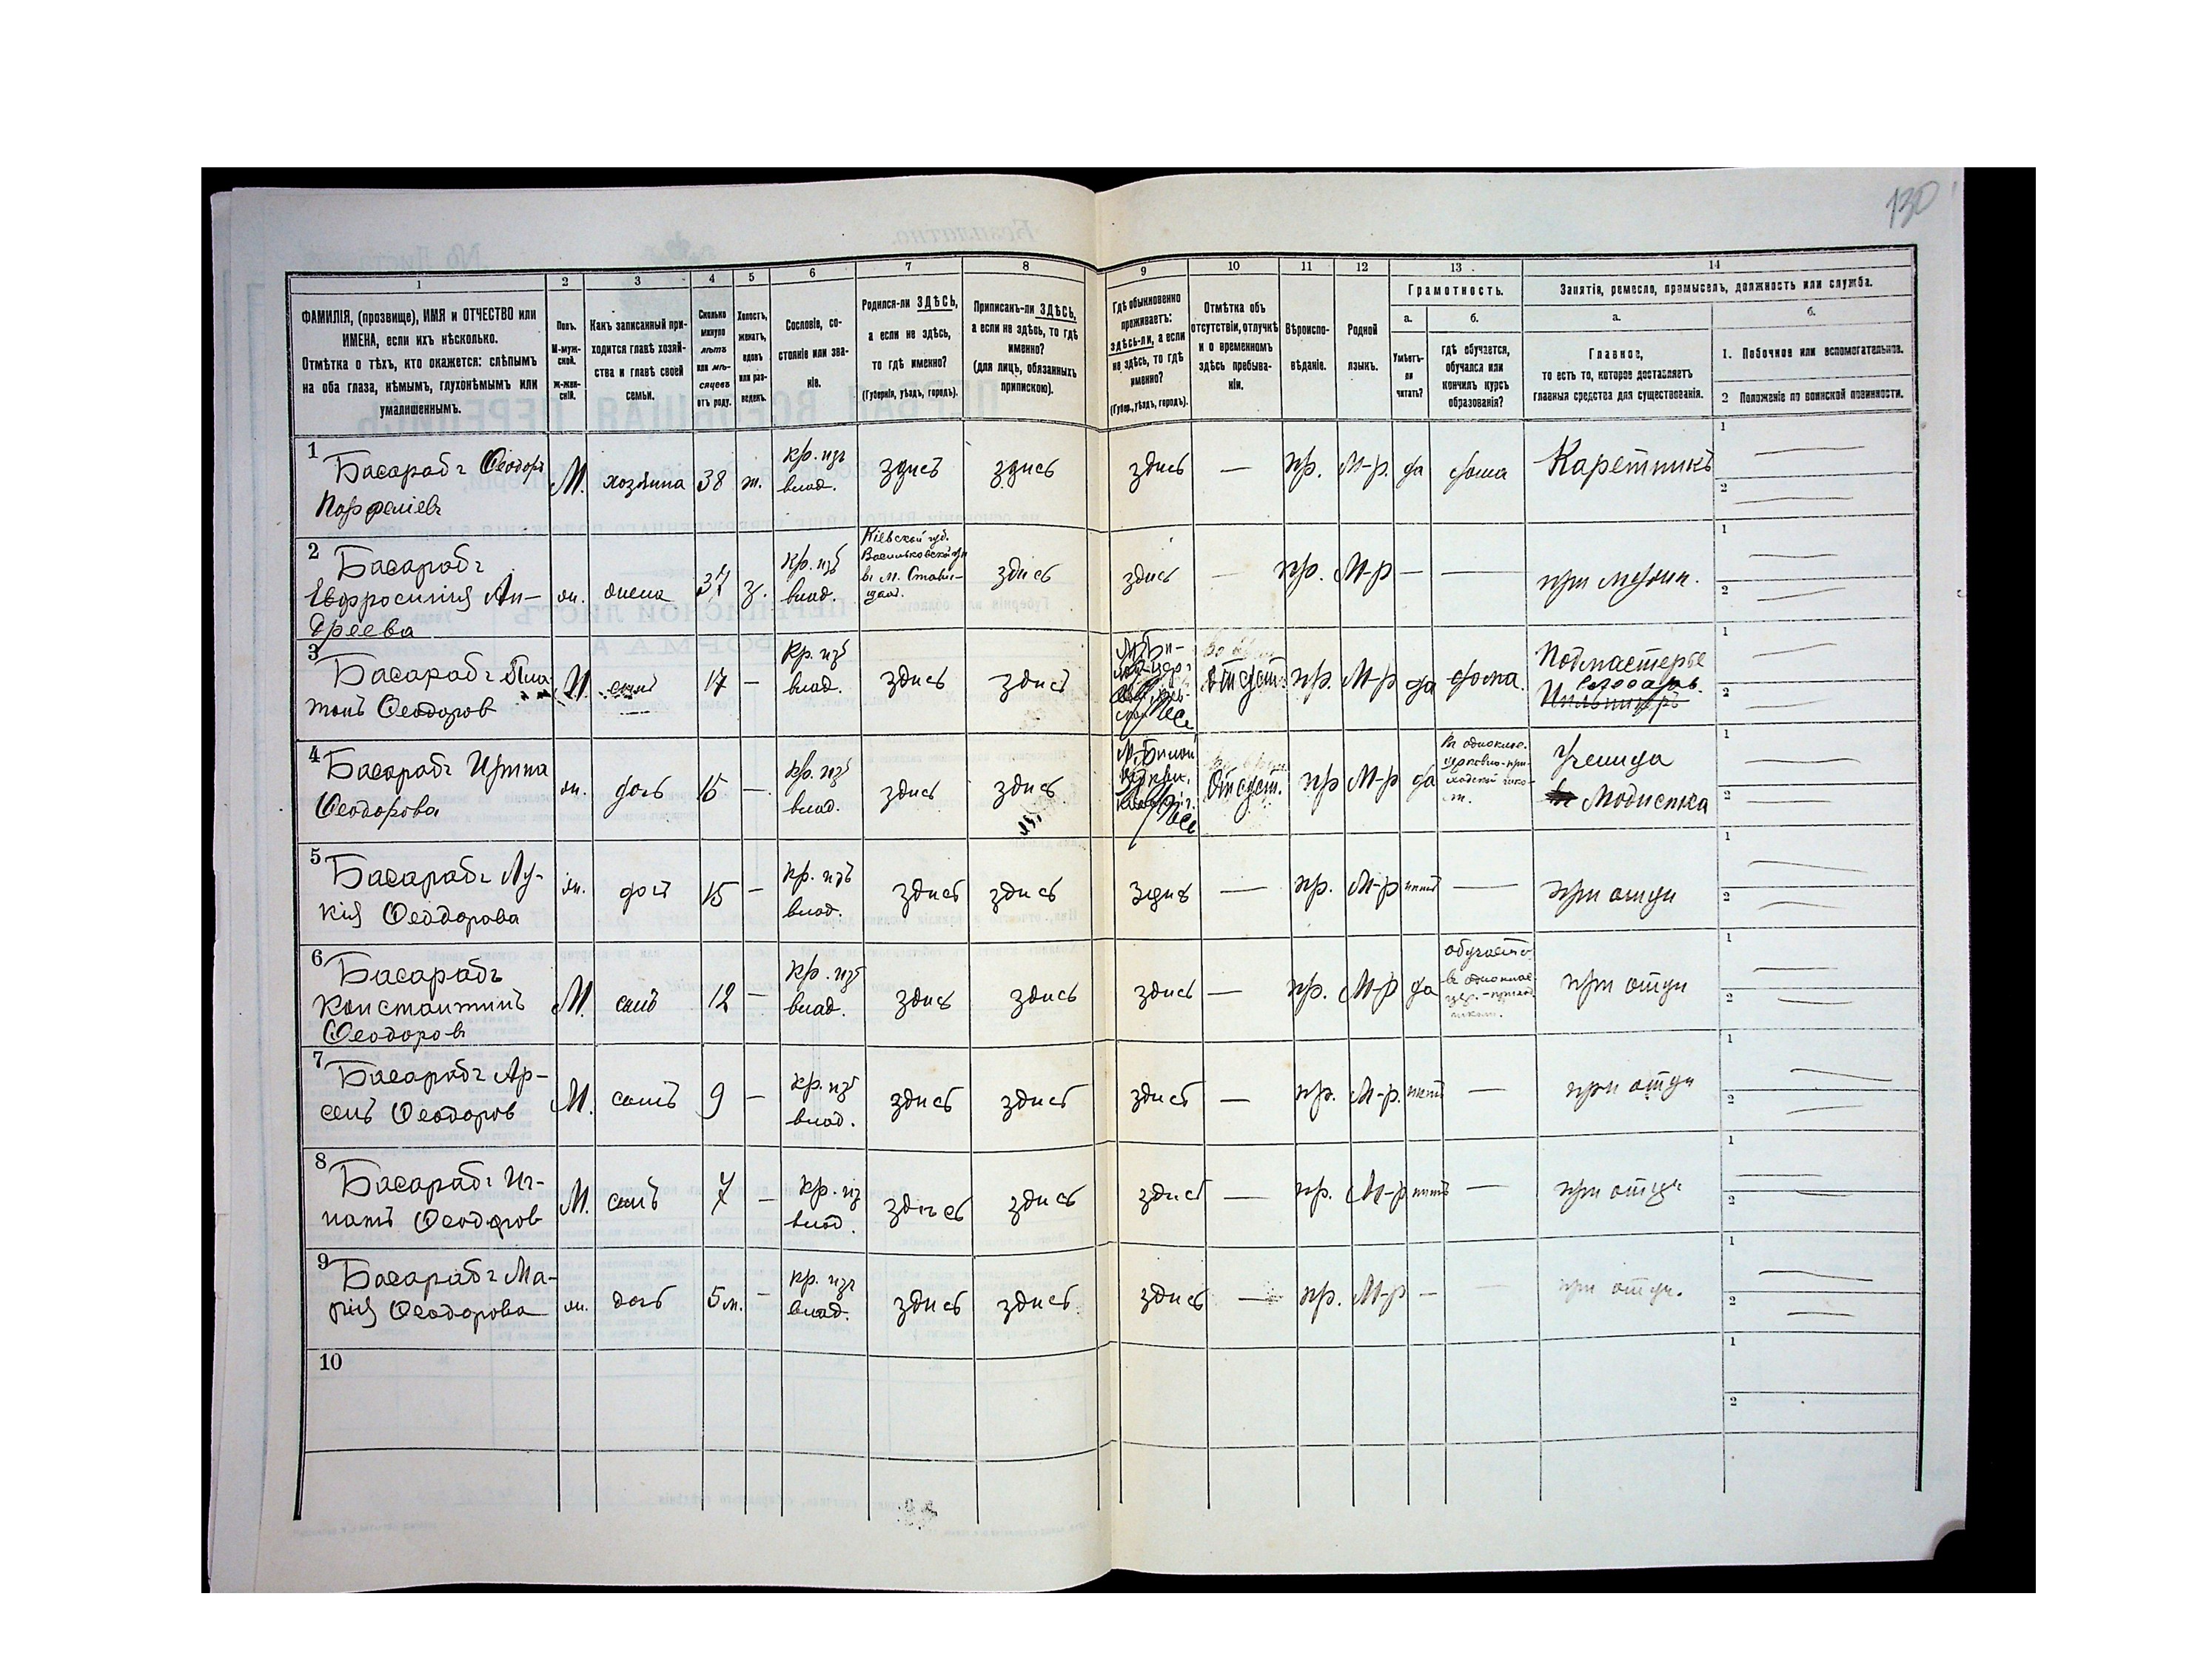 130
1 2 3 4 5 6 7 8 9 10 11 12 13 14
ФАМИЛІЯ, (прозвище), ИМЯ и ОТЧЕСТВО или
ИМЕНА, если ихъ нѣсколько.
Отмѣтка о тѣхъ, кто окажется: слѣпымъ
на оба глаза, нѣмымъ, глухонѣмымъ или
умалишеннымъ.
Полъ.
М-муж-
ской.
ж-жен-
скій.
Какъ записанный при-
ходится главѣ хозяй-
ства и главѣ своей
семьи.
Сколько
минуло
лѣтъ
или мѣ-
сяцевъ
отъ роду.
Холостъ,
женатъ,
вдовъ
или раз-
веденъ.
Сословіе, со-
стояніе или зва-
ніе.
Родился-ли ЗДѢСЬ,
а если не здѣсь,
то гдѣ именно?
(Губернія, уѣздъ, городъ).
Приписанъ-ли ЗДѢСЬ,
а если не здѣсь, то гдѣ
именно?
(для лицъ, обязанныхъ
припискою).
Гдѣ обыкновенно
проживаетъ:
здѣсь-ли, а если
не здѣсь, то гдѣ
именно?
(Губер., уѣздъ, городъ).
Отмѣтка объ
отсутствіи, отлучкѣ
и о временномъ
здѣсь пребыва-
ніи.
Вѣроиспо-
вѣданіе.
Родной
языкъ.
Грамотность.
а.
Умѣетъ-
ли
читать?
б.
гдѣ обучается,
обучался или
кончилъ курсъ
образованія?
Занятія, ремесло, промыселъ, должность или служба.
а.
Главное,
то есть то, которое доставляетъ
главныя средства для существованія.
б.
1. Побочное или вспомогательное.
2 Положеніе по воинской повинности.
1 Басарабъ Ѳеодоръ
Парфеніевъ
М. хозяина 38 ж. кр. изъ
влад. здись здись здись — пр. М-р. да дома Каретникъ 1 — 2 —
2 Басарабъ
Евфросинія Ан-
дреева
ж. жена 37 з. кр. изъ
влад.
Кіевской губ.
Васильковскаго у.
въ м. Стави-
щах.
здись здись — пр. М-р — — при мужи. 1 — 2 —
3 Басарабъ Пла-
тонъ Ѳеодоров
М. сынъ 17 — кр. изъ
влад. здись здись
отсут. пр. М-р да дома.
Подмастерье
1 — 2 —
4 Басарабъ Ирина
Ѳеодорова
ж. дочь 15 — кр. изъ
влад. здись здись
М. Бѣлой
Церкви.
отсут. пр М-р да
въ однокл.
церковно-при-
ходской шко-
л.
Ученица
Модистка 1 — 2 —
5 Басарабъ Лу-
кія Ѳеодорова
ж. дочь 15 — кр. изъ
влад. здись здись здись — пр. М-р нитъ — при отци 1 — 2 —
6 Басарабъ
Константинъ
Ѳеодоровъ
М. сынъ 12 — кр. изъ
влад. здись здись здись — пр. М-р да
обучается
въ однокла.
цер.-приход.
школ.
при отци 1 — 2 —
7 Басарабъ Ар-
сенъ Ѳеодоров
М. сынъ 9 — кр. изъ
влад. здись здись здись — пр. М-р. нитъ — при отци 1 — 2 —
8 Басарабъ Иг-
натъ Ѳеодоров
М. сынъ 7 — кр. из
влад. здись здись здись — пр. М-р нитъ — при отци 1 — 2 —
9 Басарабъ Ма-
рія Ѳеодорова
ж. дочь 5 м. — кр. изъ
влад. здись здись здись — пр. М-р — — при отци. 1 — 2 —
10 1 2